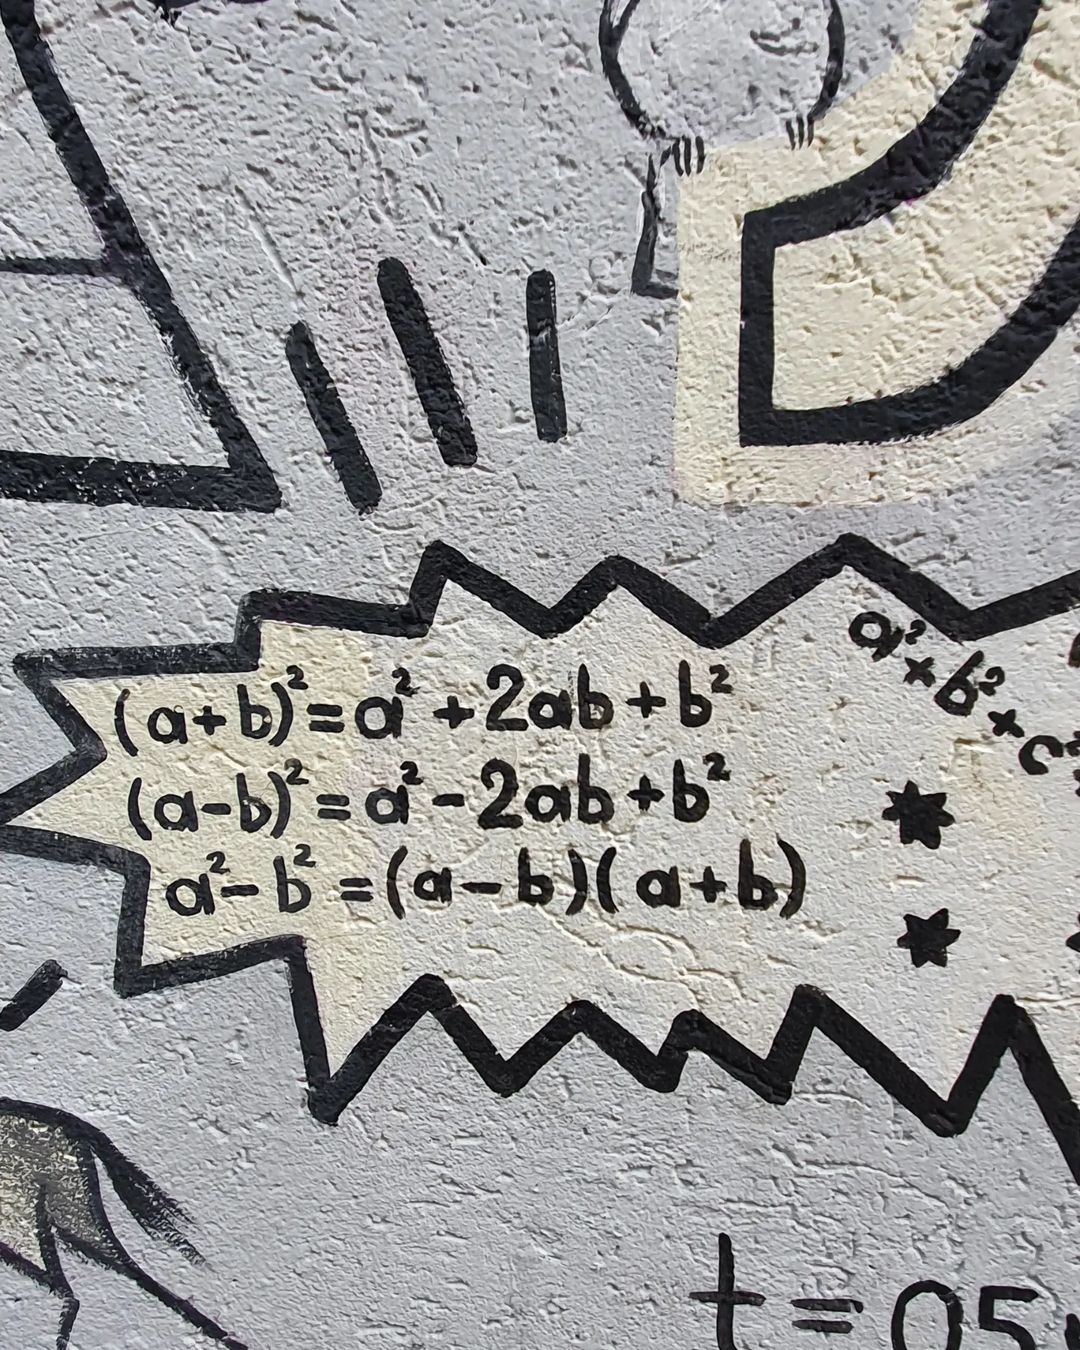 (a+b)²=a²+2ab+b²
(a-b)²=a²-2ab+b²
a²-b²=(a-b)(a+b)
a²+b²+c²
t=05